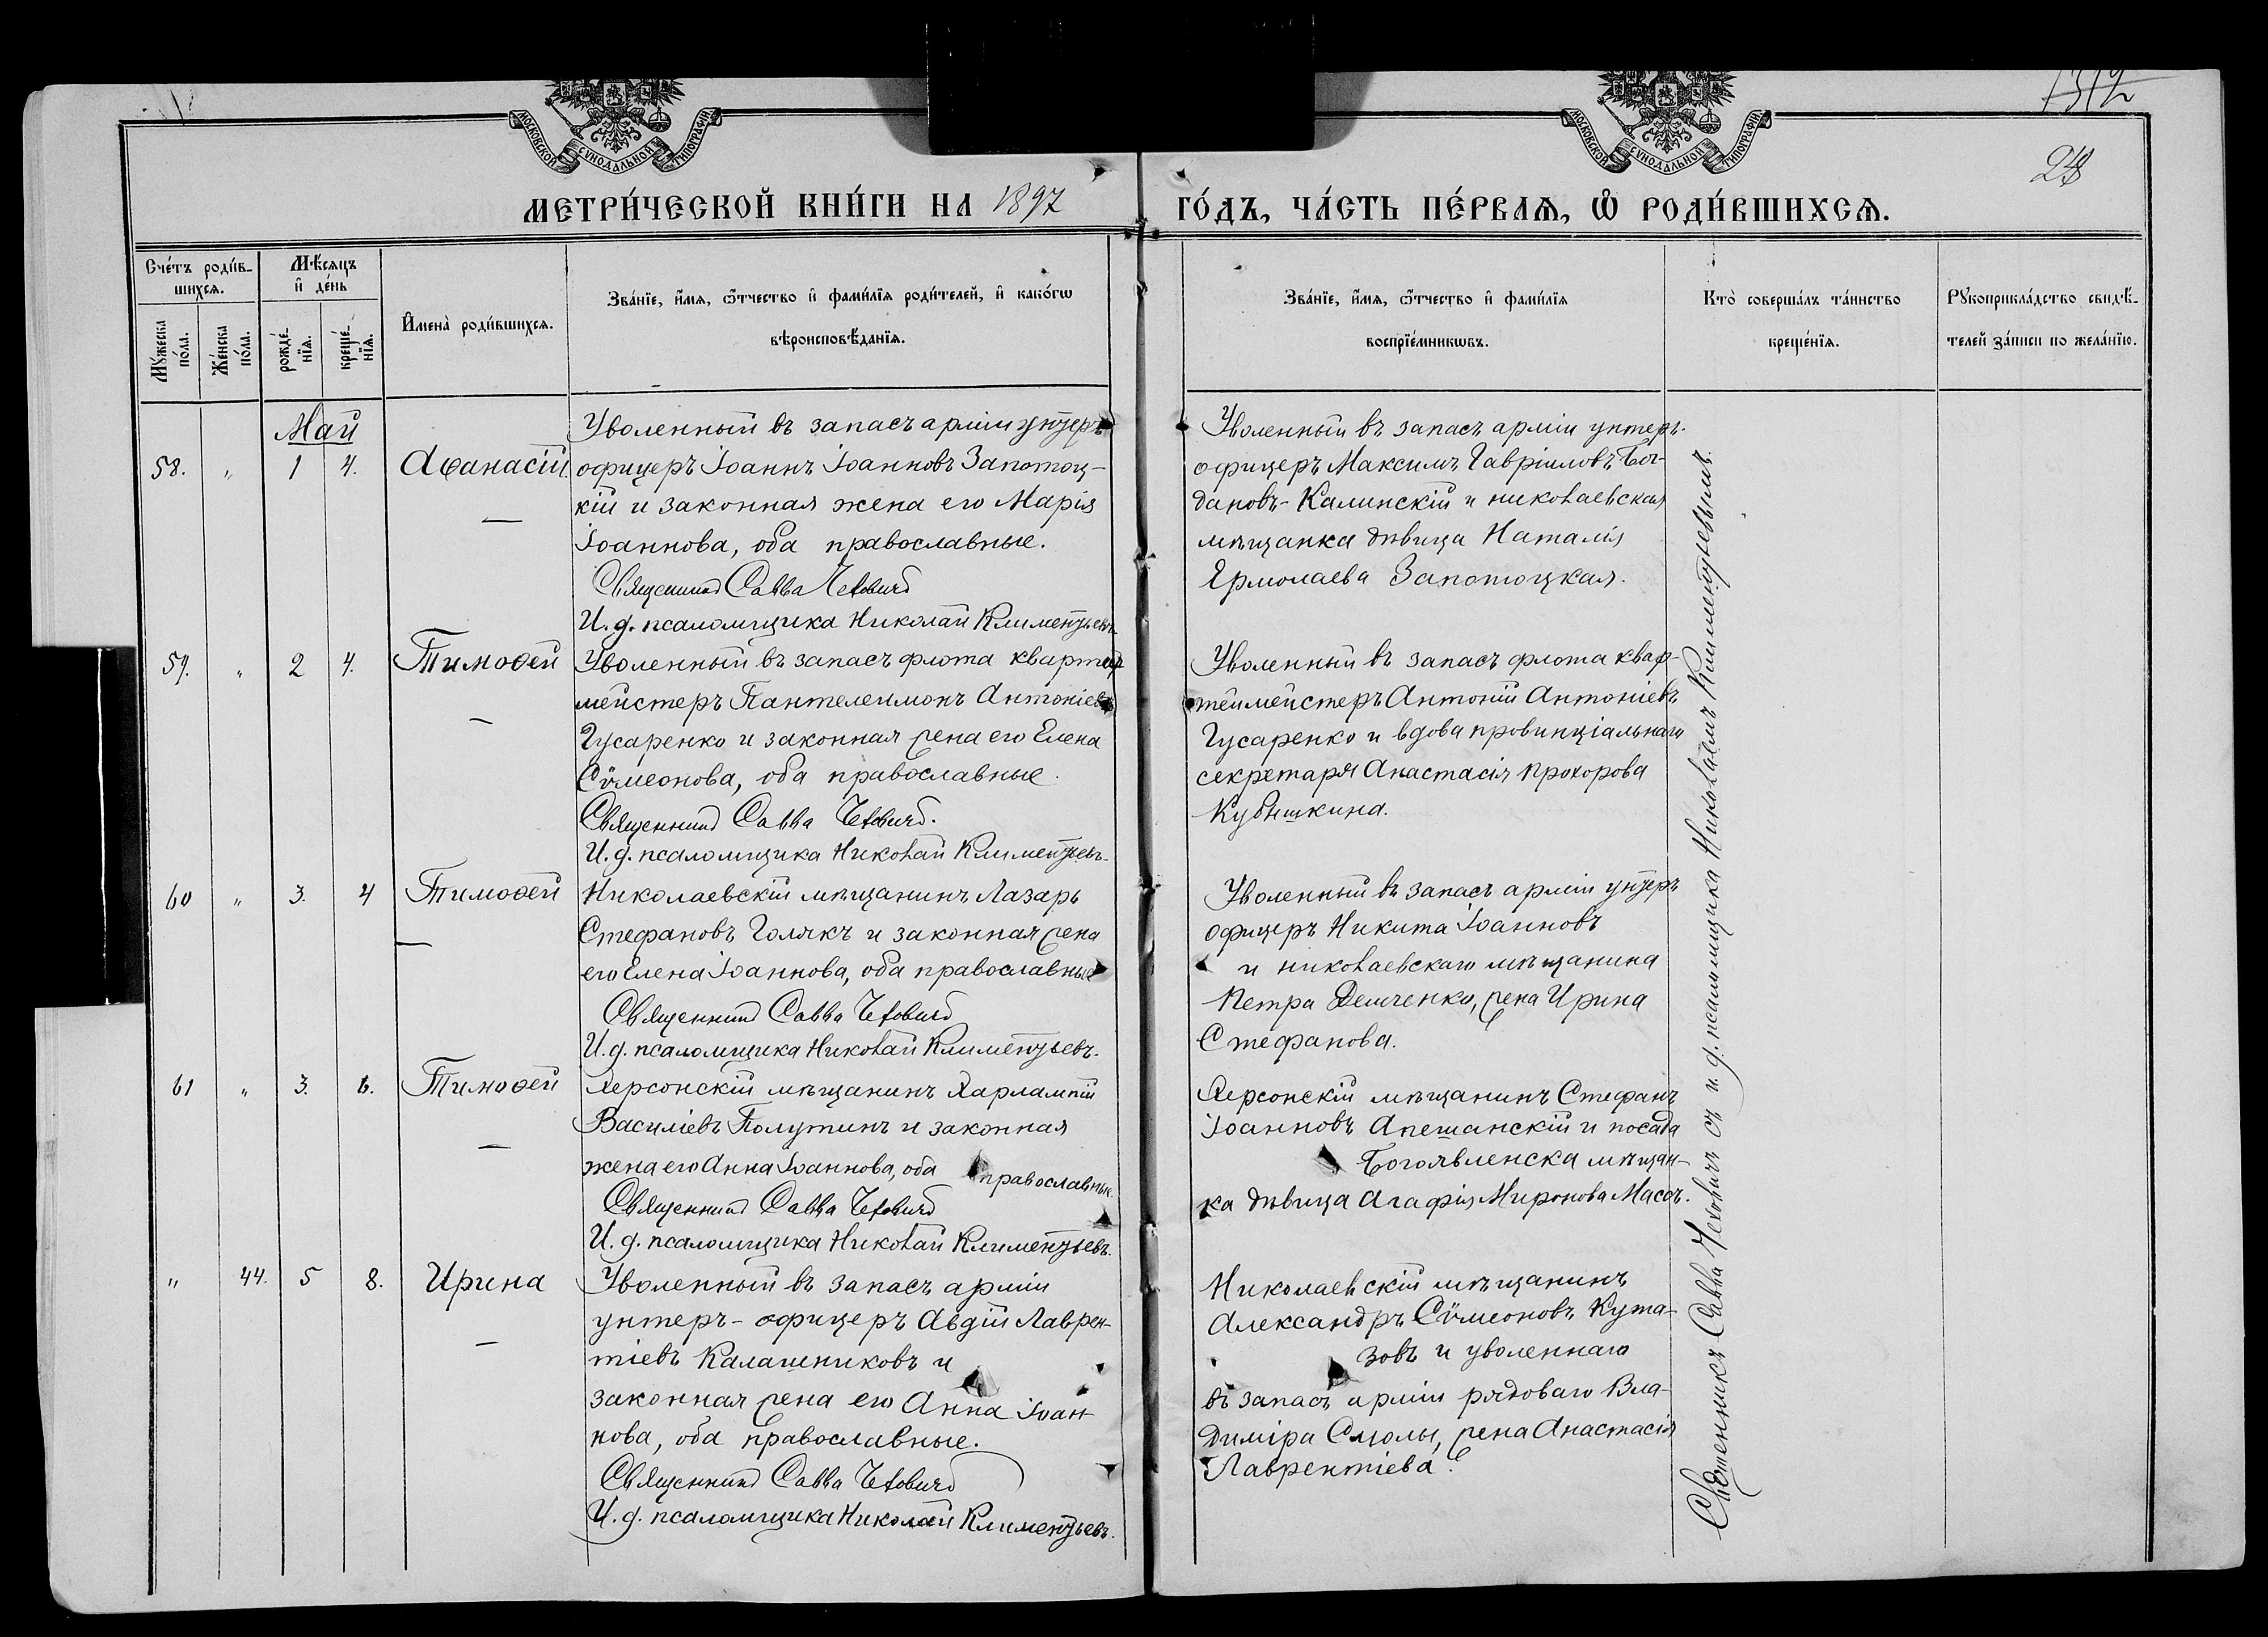 МОСКОВСКОЙ СУНОДАЛЬНОЙ ТИПОГРАФІИ
МОСКОВСКОЙ СУНОДАЛЬНОЙ ТИПОГРАФІИ
1312
28
МЕТРИ́ЧЕСКОЙ КНИ́ГИ НА 1897
ГО́ДЪ, ЧА́СТЬ ПЕ́РВАѦ, Ѡ҆ РОДИ́ВШИХСѦ.
Сче́тъ роди́в-
шихсѧ.
Мѣ́сяцъ
и҆ де́нь
Мꙋ́жеска
по́ла.
Же́нска
по́ла.
рожде́-
нїѧ.
креще́-
нїѧ.
И҆мена̀ роди́вшихсѧ.
Зва́нїе, и҆́мѧ, ѻ҆́тчество и҆ фами́лїѧ роди́телей, и҆ како́гѡ
вѣроисповѣ́данїѧ.
Зва́нїе, и҆́мѧ, ѻ҆́тчество и҆ фами́лїѧ
воспрїе́мникѡвъ.
Кто̀ соверша́лъ та́инство
креще́нїѧ.
Рꙋкоприкла́дство свидѣ́-
телей за́писи по жела́нїю.
Май
58. " 1 4. Аѳанасій.
Уволенный въ запасъ арміи унтеръ
офицеръ Іоаннъ Іоанновъ Запотоц-
кій и законная жена его Марія
Іоаннова, оба православные.
Священникъ Савва Чеховичъ
И. д. псаломщика Николай Климентьевъ.
Уволенный въ запасъ арміи унтеръ-
офицеръ Максимъ Гавріиловъ Бог-
дановъ-Калинскій и николаевская
мѣщанка дѣвица Наталія
Ермолаева Запотоцкая.
59. " 2 4. Тимоѳей
Уволенный въ запасъ флота квартир
мейстеръ Пантелеимонъ Антоніевъ
Гусаренко и законная жена его Елена
Сѵмеонова, оба православные.
Священникъ Савва Чеховичъ.
И. д. псаломщика Николай Климентьевъ.
Уволенный въ запасъ флота квар-
тейрмейстеръ Антоній Антоніевъ
Гусаренко и вдова провинціальнаго
секретаря Анастасія Прохорова
Кубышкина.
60 " 3. 4 Тимоѳей
Николаевскій мѣщанинъ Лазарь
Стефановъ Голякъ и законная жена
его Елена Іоаннова, оба православные
Священникъ Савва Чеховичъ
И. д. псаломщика Николай Климентьевъ.
Уволенный въ запасъ арміи унтеръ
офицеръ Никита Іоанновъ
и николаевскаго мѣщанина
Петра Демченко, жена Ирина
Стефанова.
61 " 3. 6. Тимоѳей
Херсонскій мѣщанинъ Харлампій
Василіевъ Полутинъ и законная
жена его Анна Іоаннова, оба православные.
Священникъ Савва Чеховичъ
И. д. псаломщика Николай Климентьевъ.
Херсонскій мѣщанинъ Стефанъ
Іоанновъ Апешанскій и посада
Богоявленска мѣщан-
ка дѣвица Агафія Миронова Масоч.
" 44. 5 8. Ирина
Уволенный въ запасъ арміи
унтеръ-офицеръ Авдій Лаврен-
тіевъ Калашниковъ и
законная жена его Анна Іоан-
нова, оба православные.
Священникъ Савва Чеховичъ
И. д. псаломщика Николай Климентьевъ.
Николаевскій мѣщанинъ
Александръ Сѵмеоновъ Кута-
зовъ и уволеннаго
въ запасъ арміи рядоваго Вла-
диміра Смолы, жена Анастасія
Лаврентіева.
Священникъ Савва Чеховичъ съ и. д. псаломщика Николаемъ Климентьевымъ.